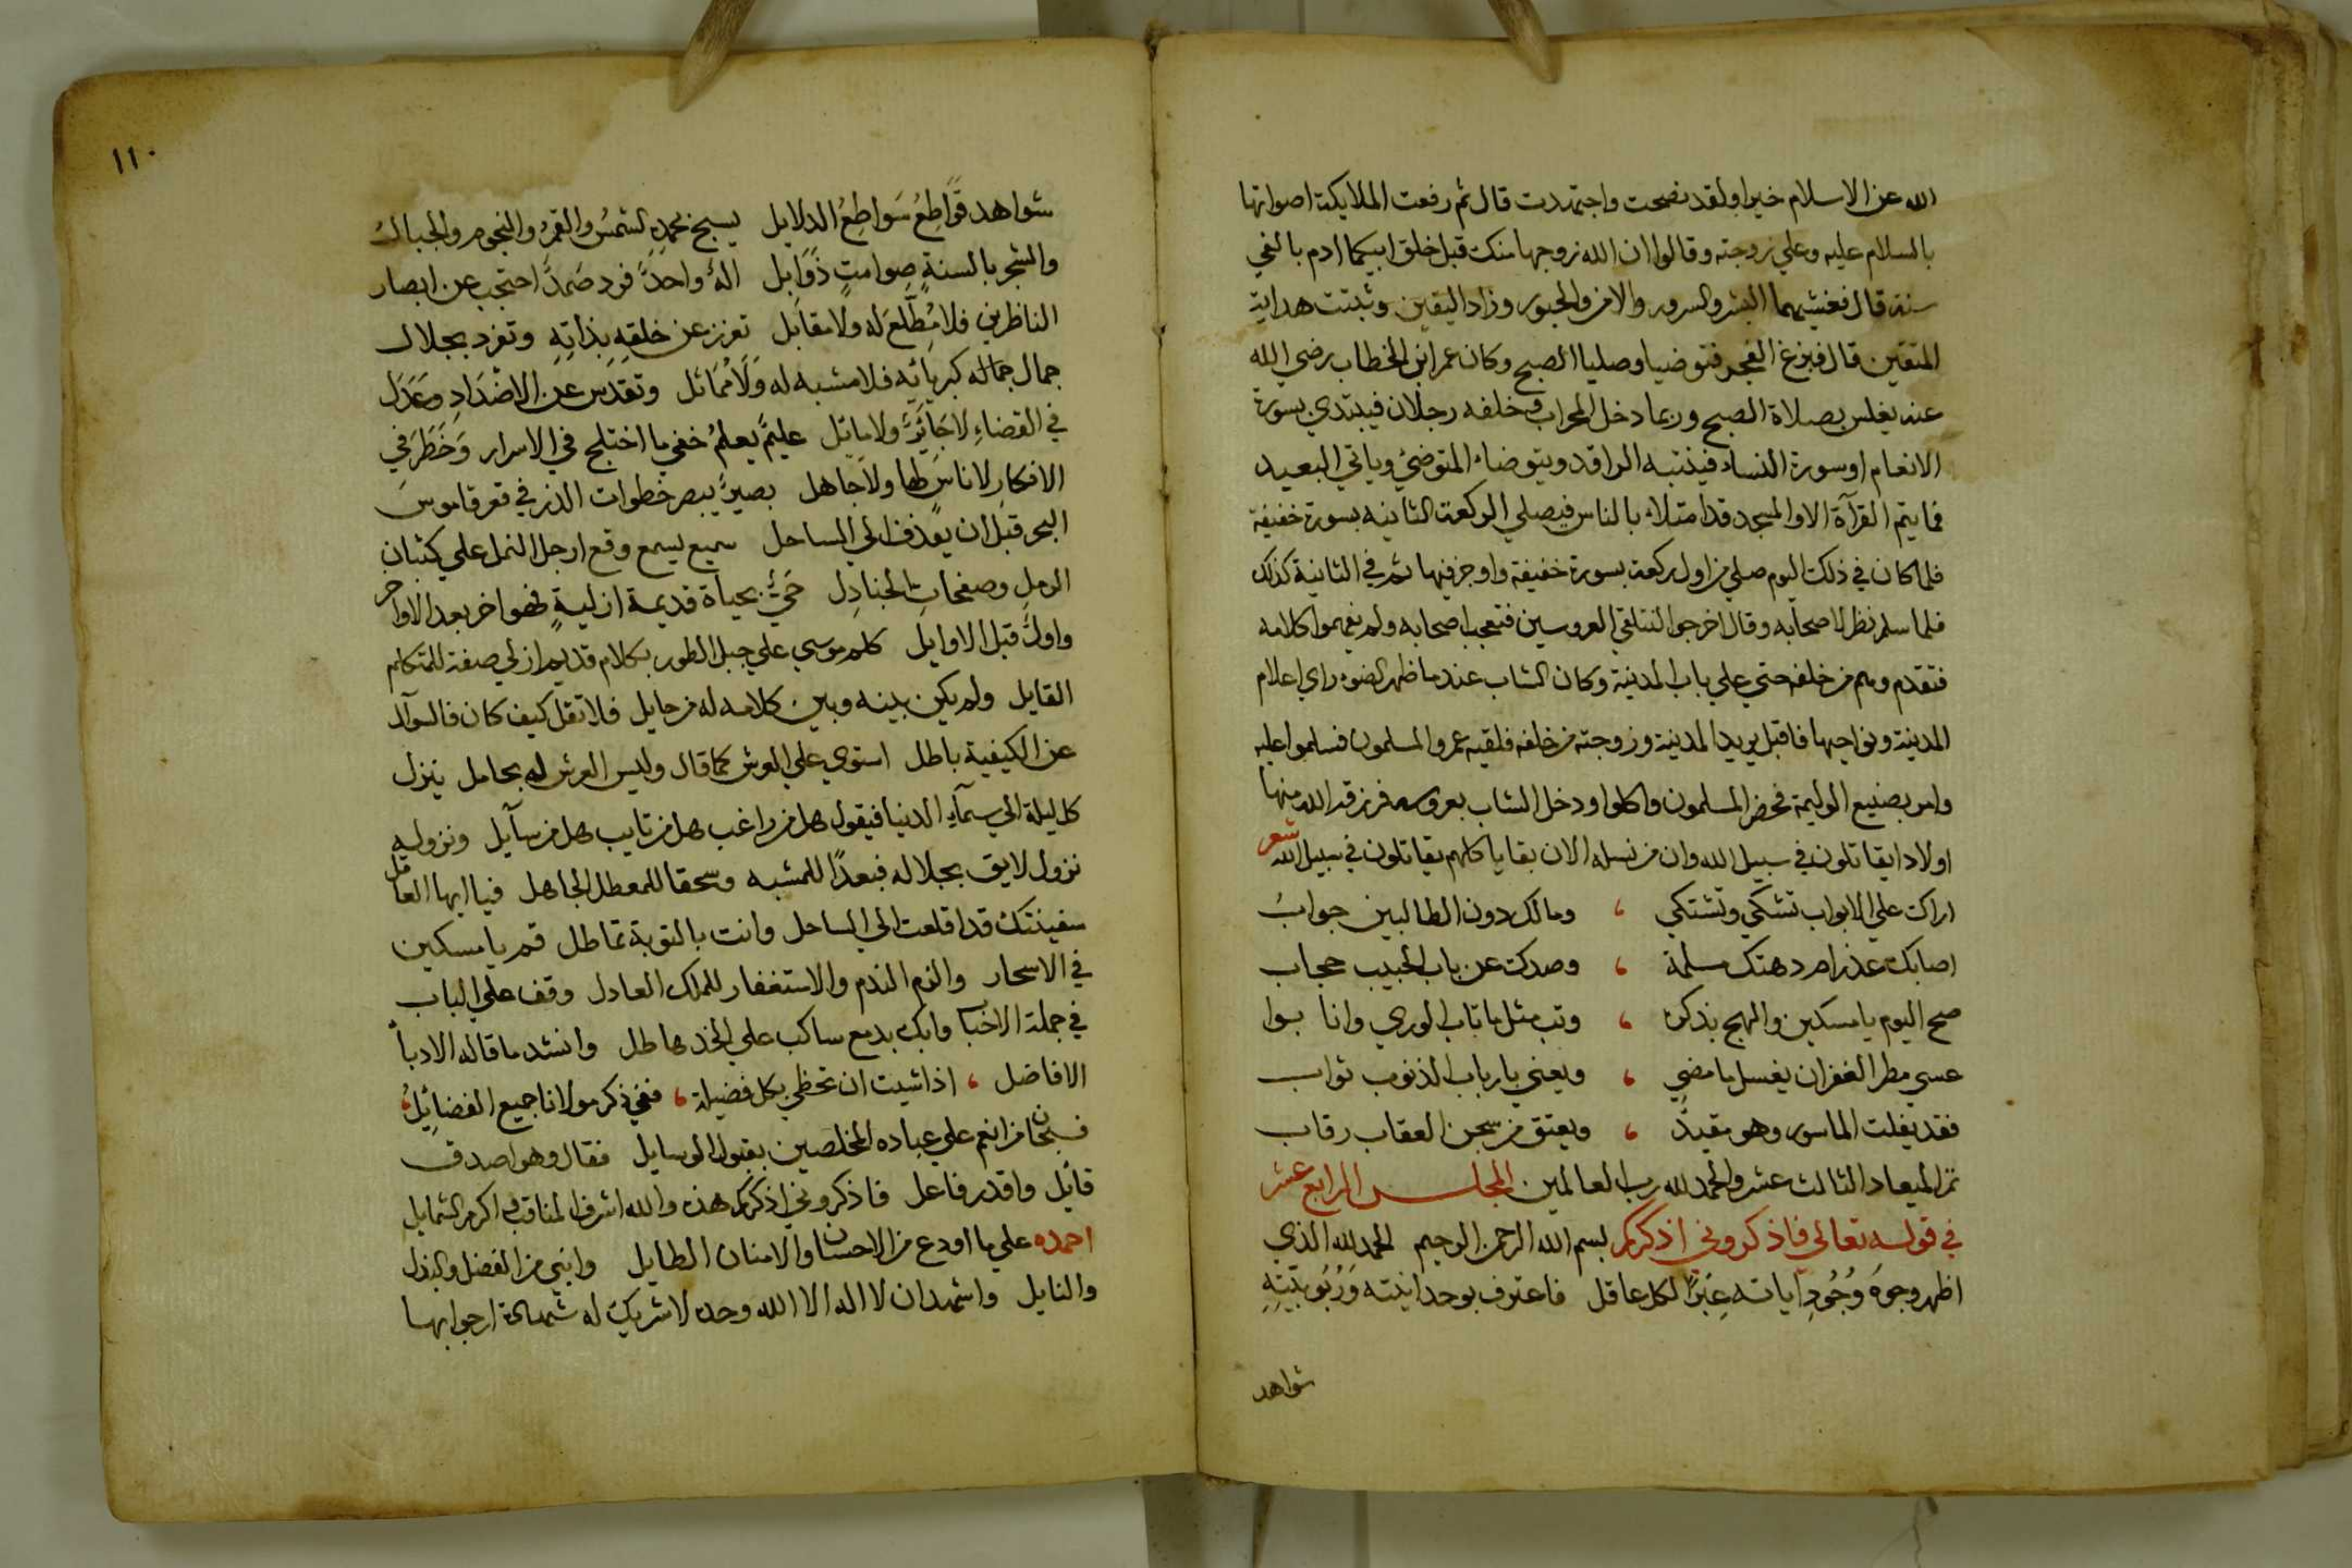 الله عن الاسلام خيرا ولقد نصحت واجتهدت قال ثم رفعت الملايكة اصواتها
بالسلام عليه وعلي زوجته وقالوا ان الله زوجها منك قبل خلق ابيكما ادم بالفي
سنة قال فغشيهما البشر والسرور والامن والحبور وزاد اليقين وثبتت هداية
المتقين قال فبزغ الفجر فتوضيا وصليا الصبح وكان عمر ابن الخطاب رضي الله
عنه يغلس بصلاة الصبح وربما دخل المحراب وخلفه رجلان فيبتدي بسورة
الانعام او سورة النساء فينتبه الراقد ويتوضاء المتوضئ وياتي البعيد
فما يتم القرآة الا والمسجد قد امتلاء بالناس فيصلي الركعة الثانيه بسورة خفيفة
فلما كان في ذلك اليوم صلي من اول ركعة بسورة خفيفة واوجز فيها ثم في الثانية كذلك
فلما سلم نظر لاصحابه وقال اخرجوا لنتلقي العروسين فتعجب اصحابه ولم يفهموا كلامه
فتقدم وهم من خلفه حتي علي باب المدينة وكان الشاب عند ما ظهر الضوء راي اعلام
المدينة ونواحيها فاقبل يريد المدينة وزوجته من خلفه فلقيه عمر والمسلمون فسلموا عليه
وامر بصنيع الوليمة فحضر المسلمون واكلوا ودخل الشاب بعروسه فرزقه الله منها
اولادا يقاتلون في سبيل الله وان من نسله الان بقايا كلهم يقاتلون في سبيل الله شعر
اراك علي الابواب تشكي وتشتكي ، ومالك دون الطالبين جواب
اصابك عذرام دهتك مسلمة ، وصدك عن باب الحبيب حجاب
صح اليوم يا مسكين والهج بذكره ، وتب مثل ما تاب الوري وانابوا
عسي مطر الغفران يغسل ما مضي ، ويعني بارباب الذنوب ثواب
فقد يفلت الماسور وهو مقيد ، ويعتق من سجن العقاب رقاب
تم الميعاد الثالث عشر والحمد لله رب العالمين المجلس الرابع عشر
في قوله تعالي فاذكروني اذكركم بسم الله الرحمن الرحيم الحمد لله الذي
اظهر وجوه وُجُودِ اياته عِبَرًا لكل عاقل فاعترف بوحدانيته وَرُبُوبيّتِهِ
شواهد
١١٠
شواهد قَوَاطِعُ سَوَاطِعُ الدلايل يسبح بحمده الشمسُ والقمرُ والنجوم والجبالُ
والشجر بالسنةٍ صوامتٍ ذَوَابِل الهٌ واحدٌ فرد صَمدٌ احتجب عن ابصار
الناظرين فلا مُطِّلعَ له ولا مقابل تعزز عن خلقِهِ بذاتِهِ وتفرد بجلال
جمال جماله كبريائِه فلا مشبه له وَلَا مُمَاثل وتقدس عن الاضْدَادِ وَعَدَل
في القضاءِ لا جَائرٌ ولا مايل عليمٌ يعلمُ خفي ما اختلج في الاسرار وَخَطَرَ في
الافكارِ لا ناسٍ لها ولا جاهل بصيرٌ يبصر خطوات الذر في قعر قاموس
البحر قبل ان يقذف الي الساحل سميع يسمع وقع ارجل النمل علي كثبان
الرمل وصفحات الجنادِل حَيٌّ بحياة قديمة ازليةٍ فهو اخر بعد الاواخر
واولٌ قبل الاوايل كلم موسي علي جبل الطور بكلام قديم ازلي صفة للمتكلم
القايل ولم يكن بينه وبين كلامه له من حايل فلا تقل كيف كان فالسوآل
عن الكيفية باطل استوي علي العرش كما قال وليس العرش له بحامل ينزل
كل ليلة الي سمآء الدنيا فيقول هل من راغب هل من تايب هل من سآيل ونزوله
نزول لايق بجلاله فبعدًا للمشبه وسحقا للمعطل الجاهل فيا ايها العاقل
سفينتك قد اقلعت الي الساحل وانت بالتوبة تماطل قم يا مسكين
في الاسحار والزم الندم والاستغفار للملك العادل وقف علي الباب
في جملة الاحباب وابك بدمع ساكب علي الخد هاطل وانشد ما قاله الادبآ
الافاضل ، اذا شيت ان تحظي بكل فضيلة ، ففي ذكر مولانا جميع الفضايِلُ ،
فسبحان من انعم علي عباده المخلصين بقبول الوسايل فقال وهو اصدق
قائل واقدر فاعل فاذكروني اذكركم هذه والله اشرف المناقب واكرم الشمايل
احمده علي ما اودع من الاحسان والامتنان الطايل وابقي من الفضل والبذل
والنايل واشهد ان لا اله الا الله وحده لا شريك له شهادة ارجوا بها